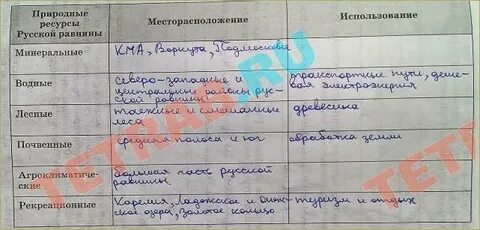 Природные ресурсы Русской равнины Месторасположение Использование
Минеральные КМА, Воркута, Подмосковье
Водные Северо-западные и центральные районы русской равнины транспортные пути, дешевая электроэнергия
Лесные таежные и смешанные леса древесина
Почвенные средняя полоса и юг обработка земли
Агроклиматические большая часть русской равнины
Рекреационные Карелия, Ладожское и Онежское озера, Золотое кольцо туризм и отдых
TETRADI.RU